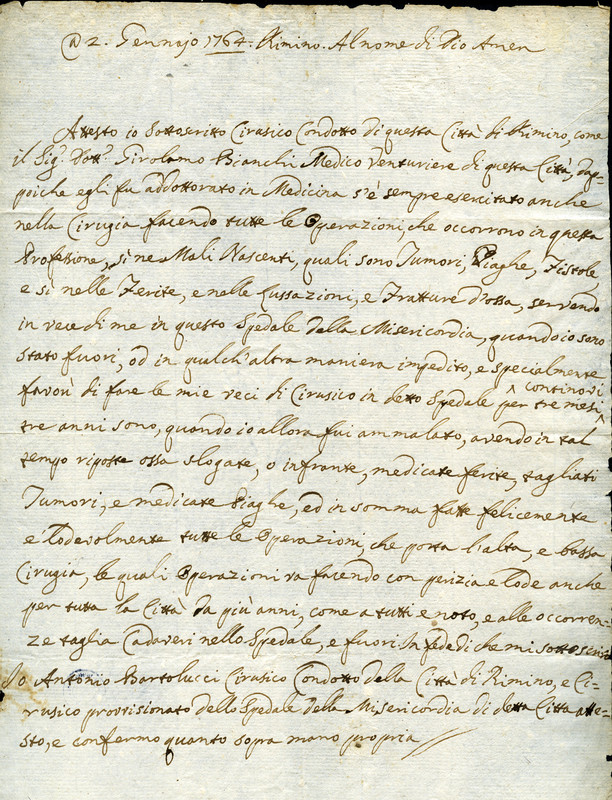 @ 2. Gennajo 1764. Rimino. Al nome di Dio Amen
Attesto io Sottoscritto Cirusico Condotto di questa Città di Rimino, come
il Sig.r Dott.r Girolamo Bianchi Medico Venturiere di questa Città, dap-
poiche egli fu addottorato in Medicina s'è sempre esercitato anche
nella Cirugia facendo tutte le Operazioni, che occorrono in questa
Professione, sì ne Mali Nascenti, quali sono Tumori, Piaghe, Fistole,
e sì nelle Ferite, e nelle Lussazioni, e Fratture d'ossa, servendo
in vece di me in questo Spedale della Misericordia, quando io sono
stato fuori, od in qualch'altra maniera impedito, e specialmente
continovi
favorì di fare le mie veci di Cirusico in detto Spedale per tre mesi ^
tre anni sono, quando io allora fui ammalato, avendo in tal
tempo riposte ossa slogate, o infrante, medicate ferite, tagliati
Tumori, e medicate Piaghe, ed in somma fatte felicemente
e lodevolmente tutte le Operazioni, che porta l'alta, e bassa
Cirugia, le quali Operazioni va facendo con perizia e lode anche
per tutta la Città da più anni, come a tutti e noto, e alle occorren-
ze taglia Cadaveri nello Spedale, e fuori. In fede di che mi sottoscrivo
Io Antonio Bartolucci Cirusico Condotto della Città di Rimino, e Ci-
rusico provvisionato dello Spedale della Misericordia di detta Città atte-
sto, e confermo quanto sopra mano propria